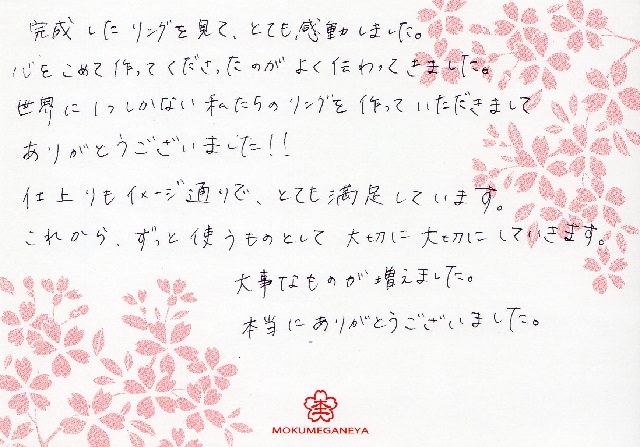 完成したリングを見て、とても感動しました。
心をこめて作ってくださったのがよく伝わってきました。
世界に1つしかない私たちのリングを作っていただきまして
ありがとうございました!!
仕上りもイメージ通りで、とても満足しています。
これから、ずっと使うものとして大切に大切にしていきます。
大事なものが増えました。
本当にありがとうございました。
MOKUMEGANEYA